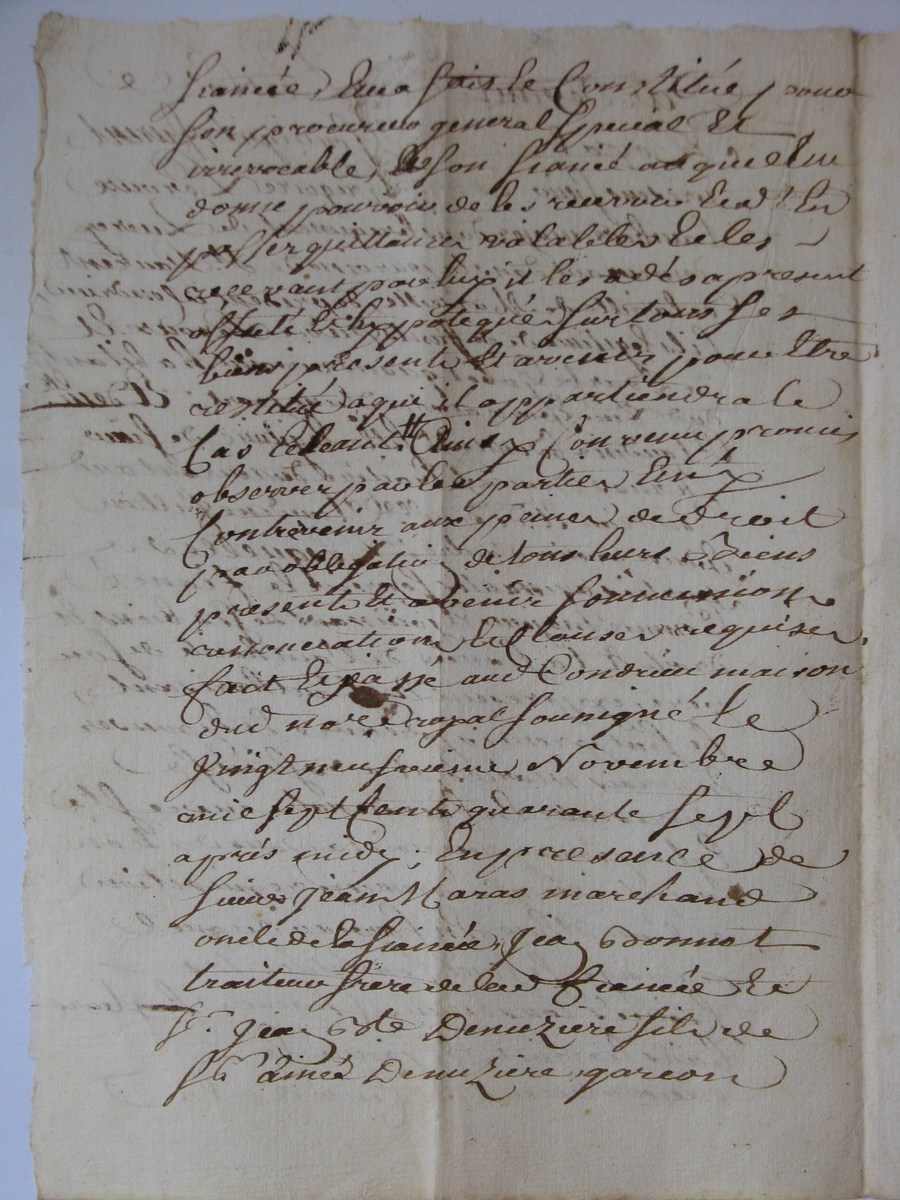 fiancée, Elle a fait le Constitué pour
son procureur general special Et
irrevocable, son fiancé auquel elle
donne pouvoir de les recevoir Et d'En
passer quittances valables Et les
recevant pour luy il les a dès apresent
affecté Et hypotequé sur tous ses
biens presents Et avenir pour Etre
restitué a qui il appartiendra le
Cas
observer par les parties
Contrevenir aux peines de droit
par obligation de tous leurs Biens
presents Et avenir soumissions
renonciations Et Clauses requises.
fait Et passé aud Condrieu maison
dud no.re royal soussigné Le
Vingt neufvieme Novembre
mil sept Cents quarante sept
après midy; En presence de
sieurs jean Maras marchand
oncle de la fiancée, jean Bonnot
traiteur frere de lad fiancée Et
Sr. jean bte Denuzière fils de
Sr aimé Denuziere garcon